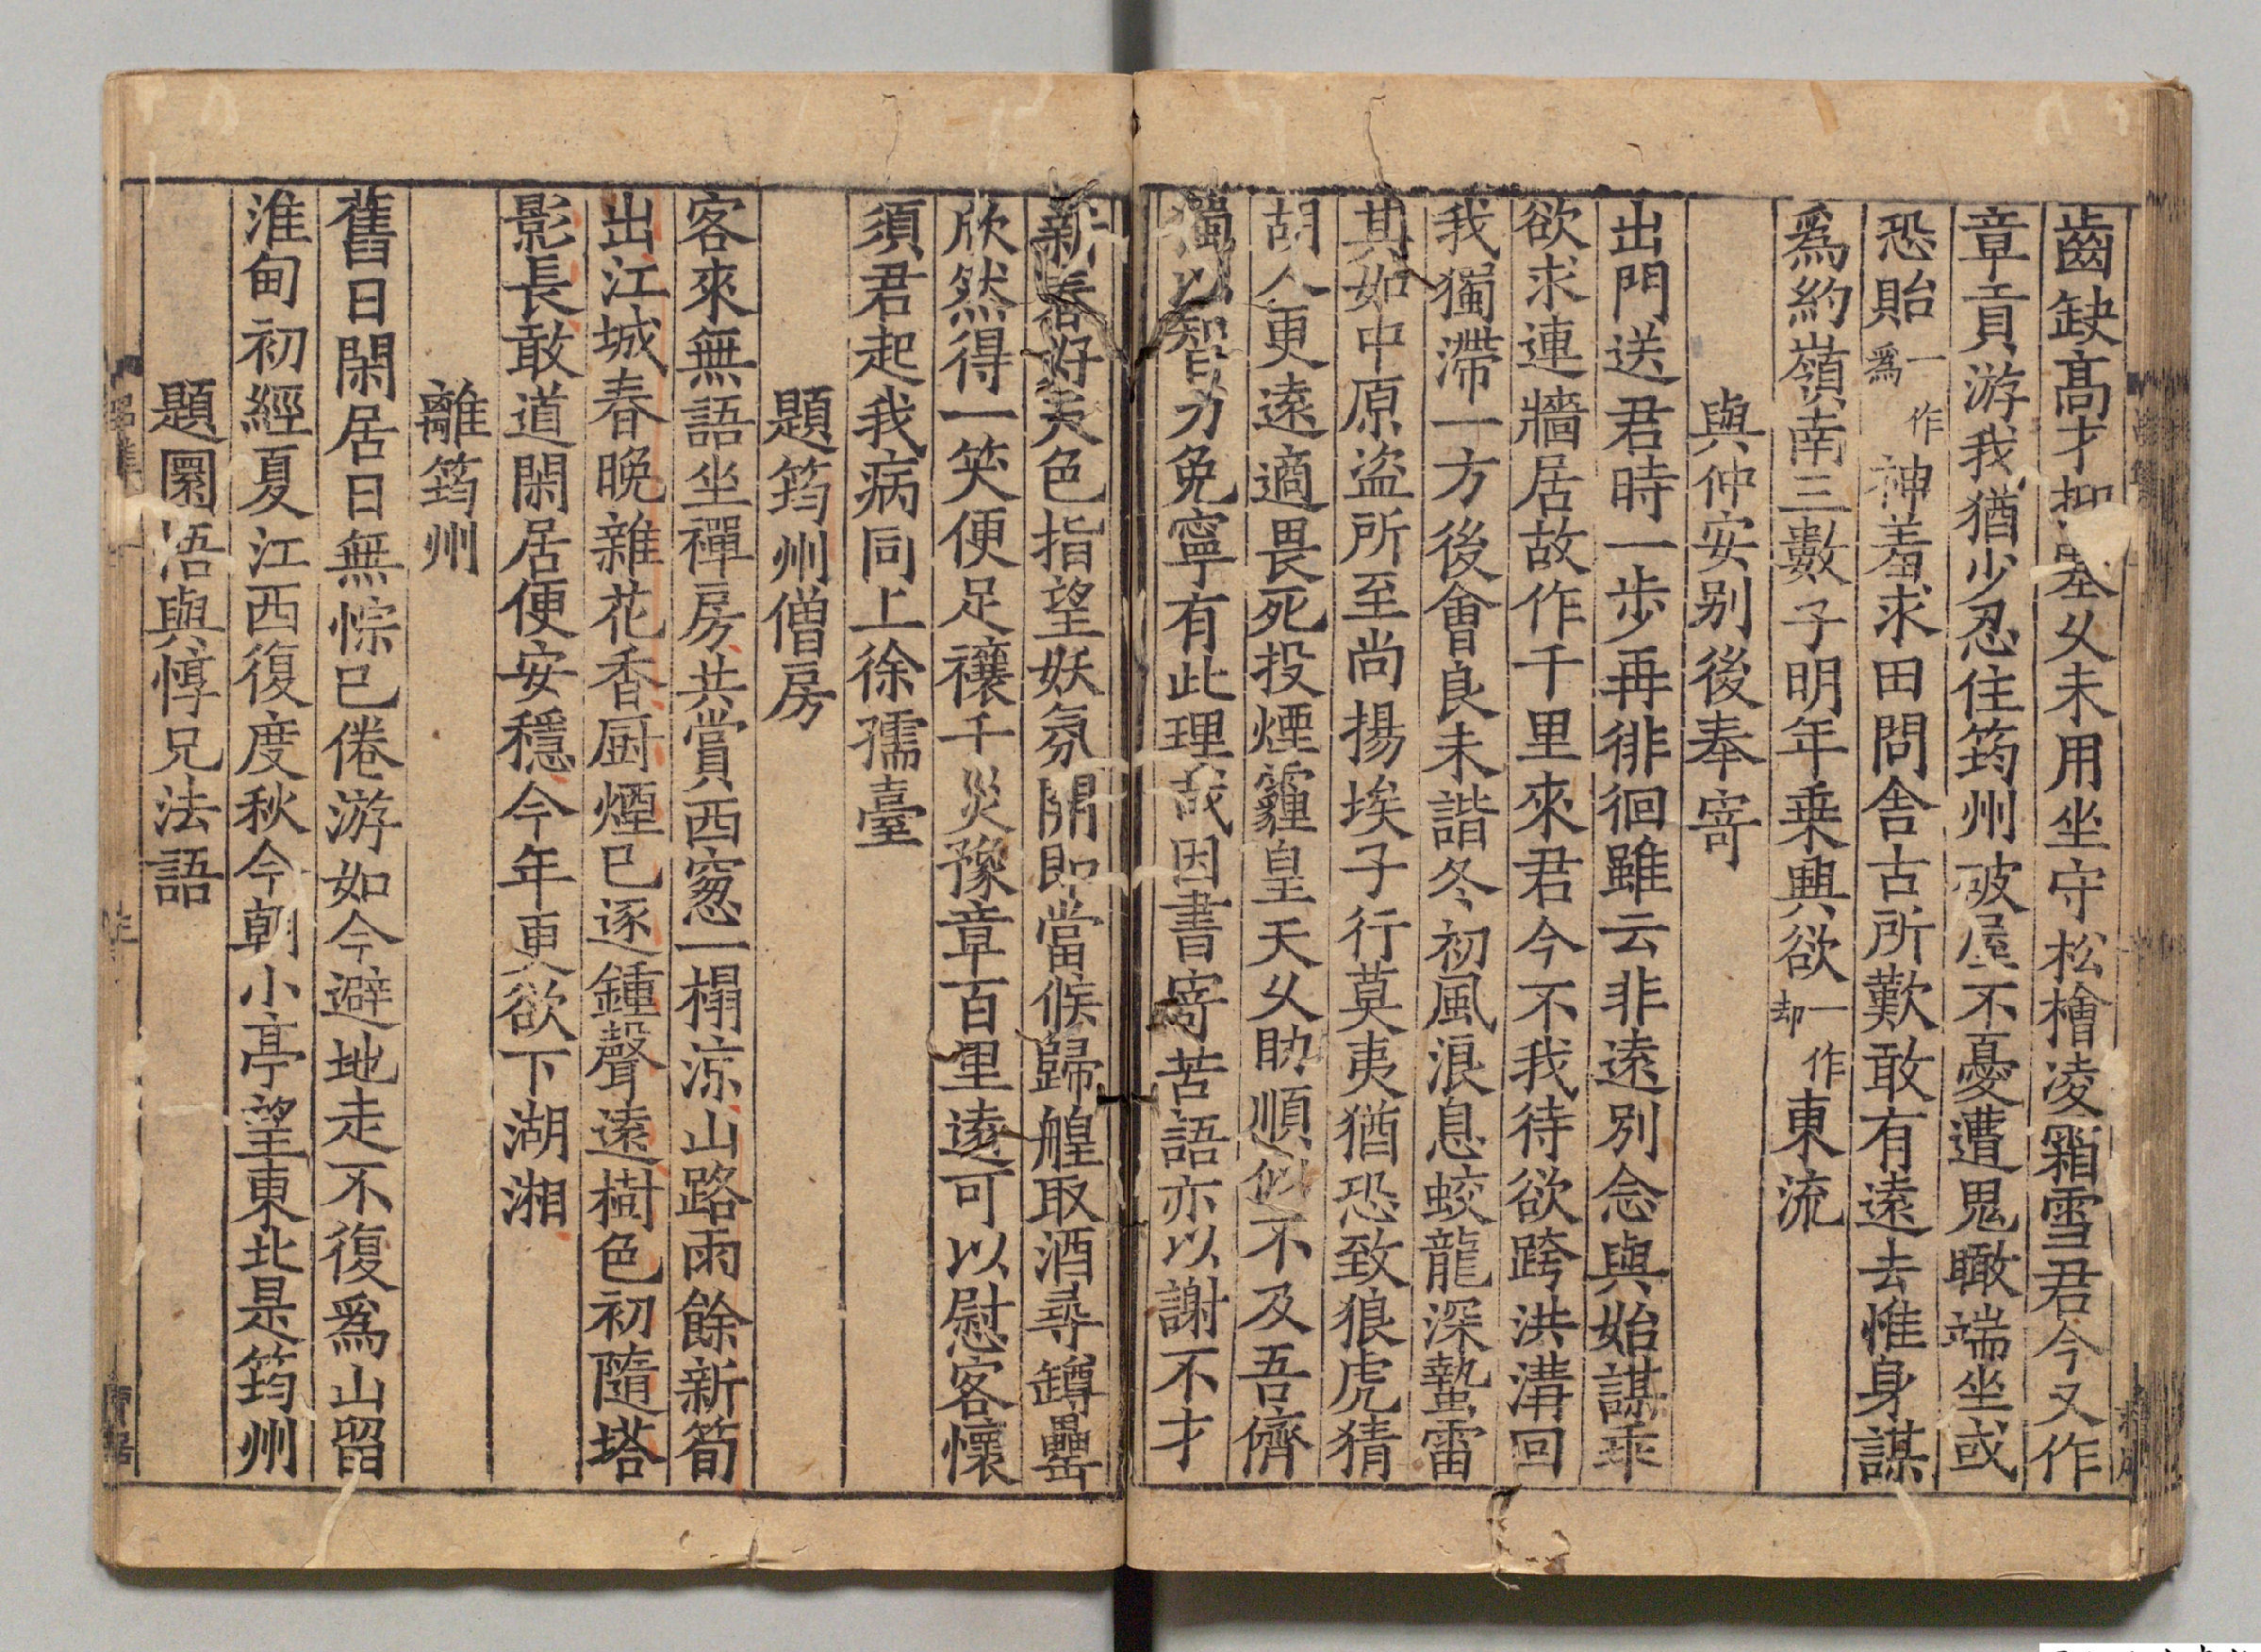 齒缺高才抑塞久未用坐守松檜凌霜雪君今又作
章貢游我猶少忍住筠州破屋不憂遭鬼瞰端坐或
恐貽一作爲神羞求田問舍古所歎敢有遠去惟身謀
爲約嶺南三數子明年乗興欲一作却東流
與仲安别後奉寄
出門送君時一步再徘徊雖云非遠別念與始謀乖
欲求連牆居故作千里來君今不我待欲跨洪溝回
我獨滯一方後會良未諧冬初風浪息蛟龍深蟄雷
其如中原盜所至尚揚埃子行莫夷猶恐致狼虎猜
胡人更遠適畏死投煙霾皇天久助順似不及吾儕
獨以智力免寧有此理哉因書寄苦語亦以謝不才
新春好天色指望妖氛開即當候歸艎取酒尋罇罍
欣然得一笑便足禳千災豫章百里遠可以慰客懷
須君起我病同上徐孺臺
題筠州僧房
客來無語坐禪房共賞西窓一榻涼山路雨餘新筍
出江城春晚雜花香厨煙已逐鍾聲遠樹色初隨塔
影長敢道閑居便安穩今年更欲下湖湘
離筠州
舊日閑居日無悰已倦游如今避地走不復爲山留
淮甸初經夏江西復度秋今朝小亭望東北是筠州
題圜悟與惇兄法語